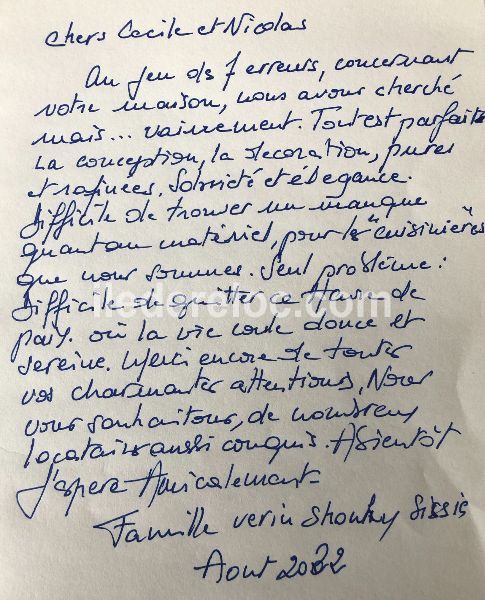 Chers Cecile et Nicolas
Au jeu des 7 erreurs, concernant
votre maison, nous avons cherché
mais... vainement. Tout est parfait
La conception, la decoration, pures
et rafinees. Sobriété et élegance.
Difficile de trouver un manque
quant au matériel, pour les "cuisinières"
que nous sommes. Seul problème :
Difficile de quitter ce Havre de
paix. où la vie coule douce et
sereine. Merci encore de toutes
vos charmantes attentions, Nous
vous souhaitons, de nombreux
locataires aussi conquis. A Bientôt
J'espere Amicalement
Famille verin
Aout 2022
iledereloc.com